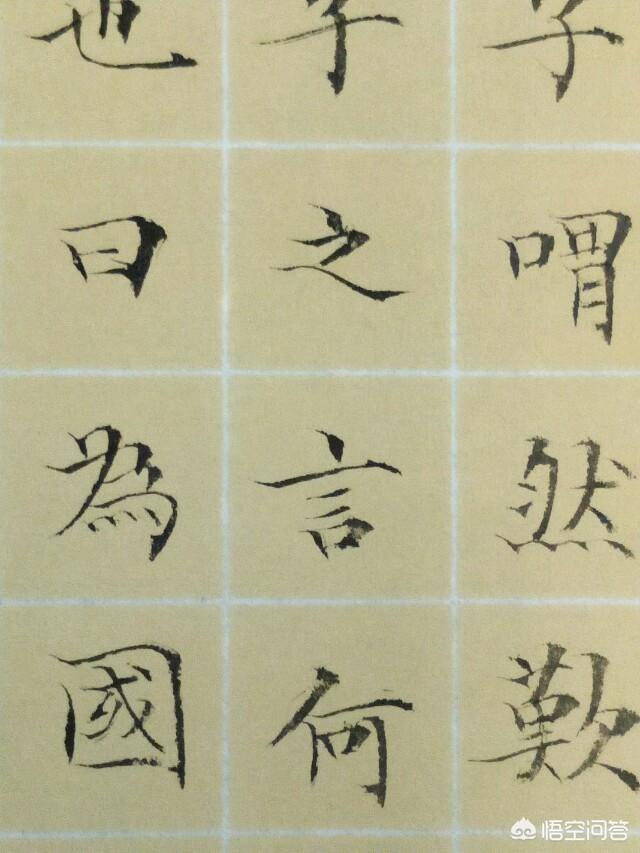 子喟然歎
子之言何
也曰為國
悟空问答